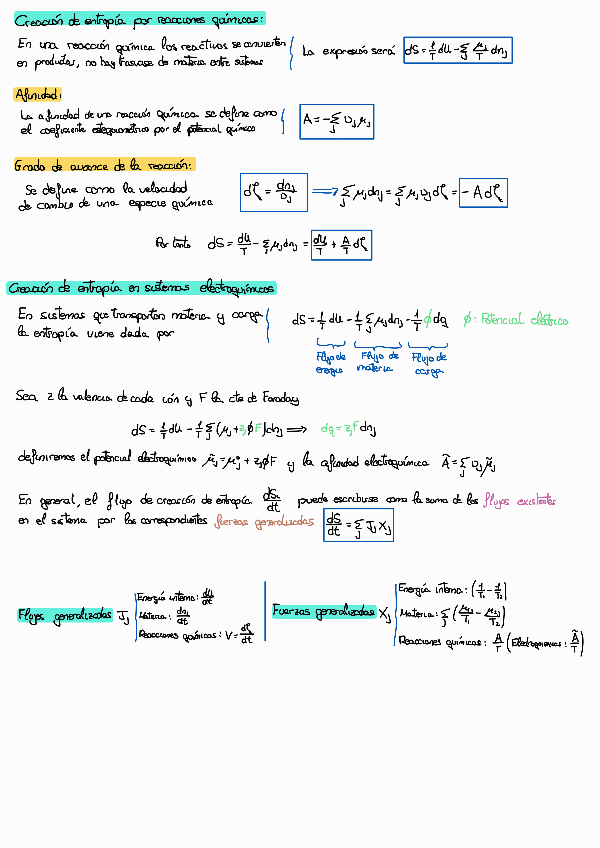 Creación de entropía por reacciones químicas:
En una reacción química los reactivos se convierten
en productos, no hay trasvase de materia entre sistemas
La expresión será dS = 1/T dU - Σj μj/T dnj
Afinidad:
La afinidad de una reacción química se define como
el coeficiente estequiométrico por el potencial químico
A = -Σj υj μj
Grado de avance de la reacción:
Se define como la velocidad
de cambio de una especie química
dξ = dnj/υj ⟹ Σj μj dnj = Σj μj υj dξ = -A dξ
Por tanto dS = dU/T - Σj μj dnj = dU/T + A/T dξ
Creación de entropía en sistemas electroquímicos
En sistemas que transporten materia y carga
la entropía viene dada por
dS = 1/T dU - 1/T Σj μj dnj - 1/T ϕ dq ϕ: Potencial eléctrico
Flujo de energía
Flujo de materia
Flujo de carga
Sea z la valencia de cada ión y F la cte de Faraday
dS = 1/T dU - 1/T Σj (μj + zj ϕ F) dnj ⟹ dq = zj F dnj
definiremos el potencial electroquímico μ̃j = μj° + zj ϕ F y la afinidad electroquímica Ã = Σj υj μ̃j
En general, el flujo de creación de entropía dSi/dt puede escribirse como la suma de los flujos existentes
en el sistema por las correspondientes fuerzas generalizadas dS/dt = Σj Jj Xj
Flujos generalizados Jj
Energía interna: dU/dt
Materia: dnj/dt
Reacciones químicas: V = dξ/dt
Fuerzas generalizadas Xj
Energía interna: (1/T1 - 1/T2)
Materia: Σj (μj1/T1 - μj2/T2)
Reacciones químicas: A/T (Electroquímicas: Ã/T)